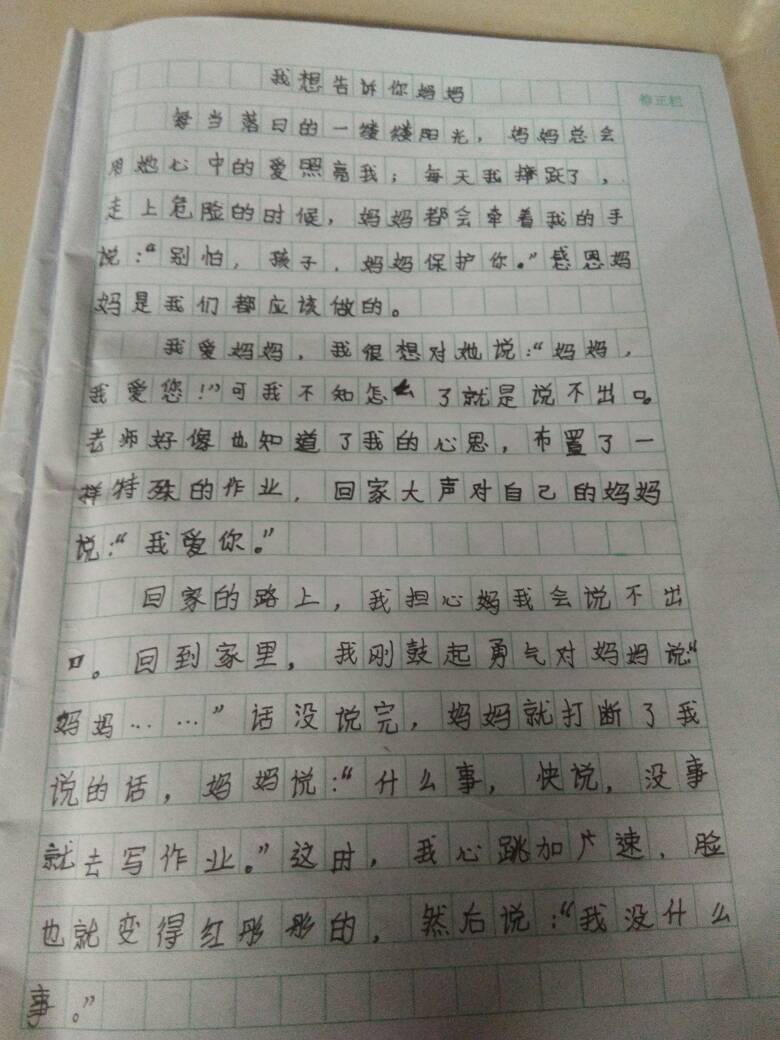 我想告诉你妈妈
修正栏
每当落日的一缕缕阳光，妈妈总会
用她心中的爱照亮我；每天我摔跃了，
走上危脸的时候，妈妈都会牵着我的手
说：“别怕，孩子，妈妈保护你。”感恩妈
妈是我们都应该做的。
我爱妈妈，我很想对她说：“妈妈，
我爱您！”可我不知怎么了就是说不出口。
老师好像也知道了我的心思，布置了一
样特殊的作业，回家大声对自己的妈妈
说：“我爱你。”
回家的路上，我担心妈我会说不出
口。回到家里，我刚鼓起勇气对妈妈说：“
妈妈……”话没说完，妈妈就打断了我
说的话，妈妈说：“什么事，快说，没事
就去写作业。”这时，我心跳加广速，脸
也就变得红彤彤的，然后说：“我没什么
事。”